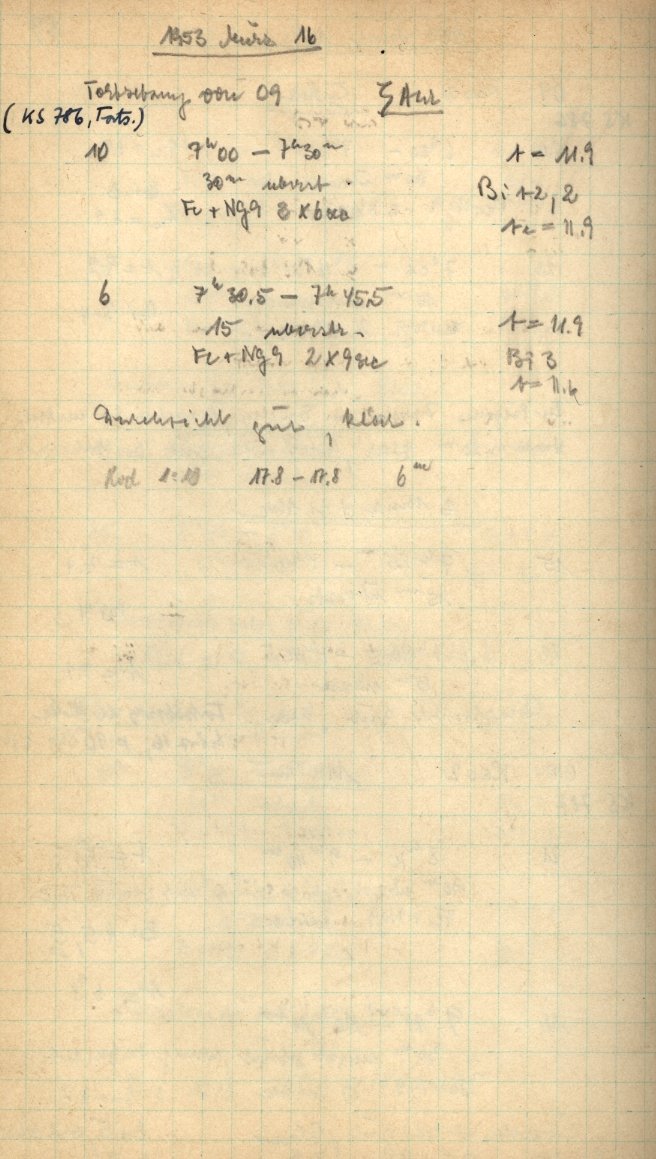 1953 März 16
Fortsetzung von 09 ζ Aur
(KS 786, Forts.)
10 7ʰ00 – 7ʰ30ᵐ t = 11.9
30ᵐ Bi +2, 2
Fe + Ng9 8 x 6 sec
= 11.9
6 7ʰ30.5 – 7ʰ45.5
15 t = 11.9
Fe + Ng9 2 x 9 sec Bi 3
Durchsicht gut, klar.
17.8 – 17.8 6ᵐ